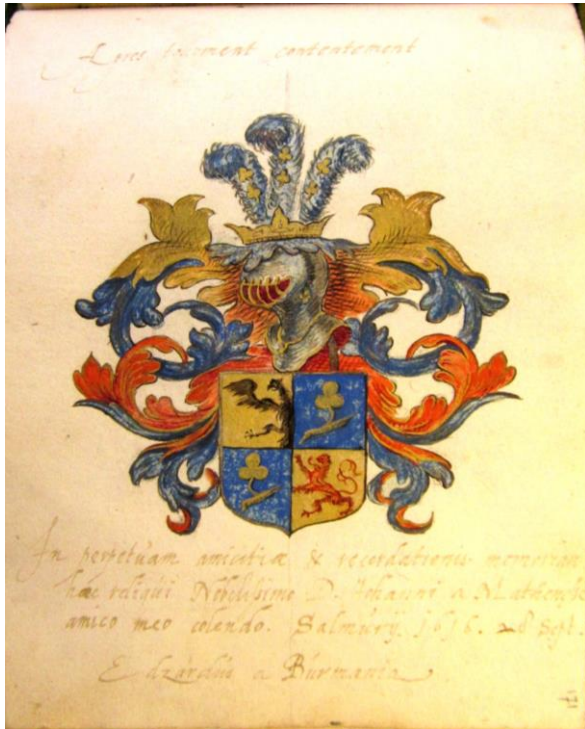 Apres tourment contentement
In perpetuam amicitiæ & recordationis memoriam
hæc reliqui Nobilissimo D. Johanni a Mathenesse
amico meo colendo. Salmurij. 1616. 28 Sept.
Edzardus a Burmania